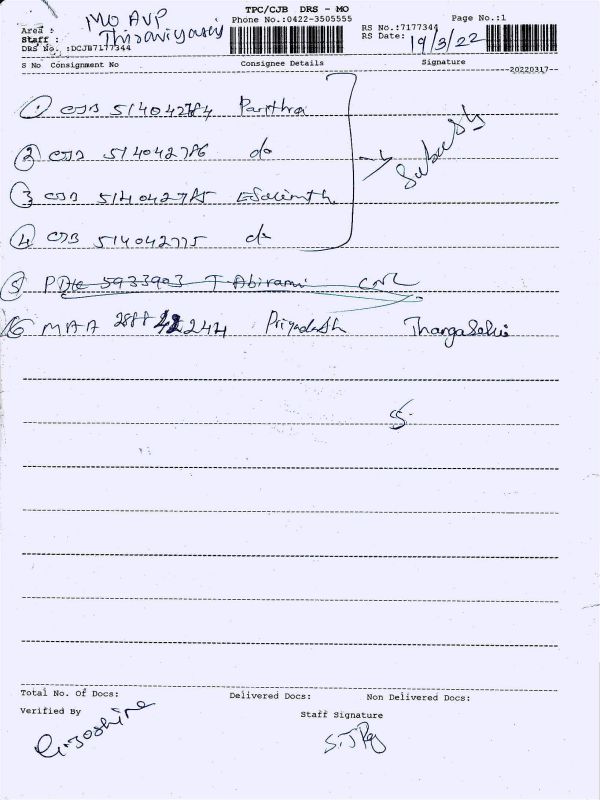 TPC/CJB DRS - MO
Phone No.:0422-3505555
Page No.:1
Area :
MO AVP
Staff :
DRS No. :DCJB7177344
RS No.:7177344
RS Date: 19/3/22
S No Consignment No Consignee Details Signature
20220317
1 CJB 514042784 Pavithra
2 CJB 514042786 do
3 CJB 514042785
4 CJB 514042775 do
5 PDK 5933903 T Abirami
6 MAA 244 Priyadash
S.
Total No. Of Docs: Delivered Docs: Non Delivered Docs:
Verified By
Staff Signature